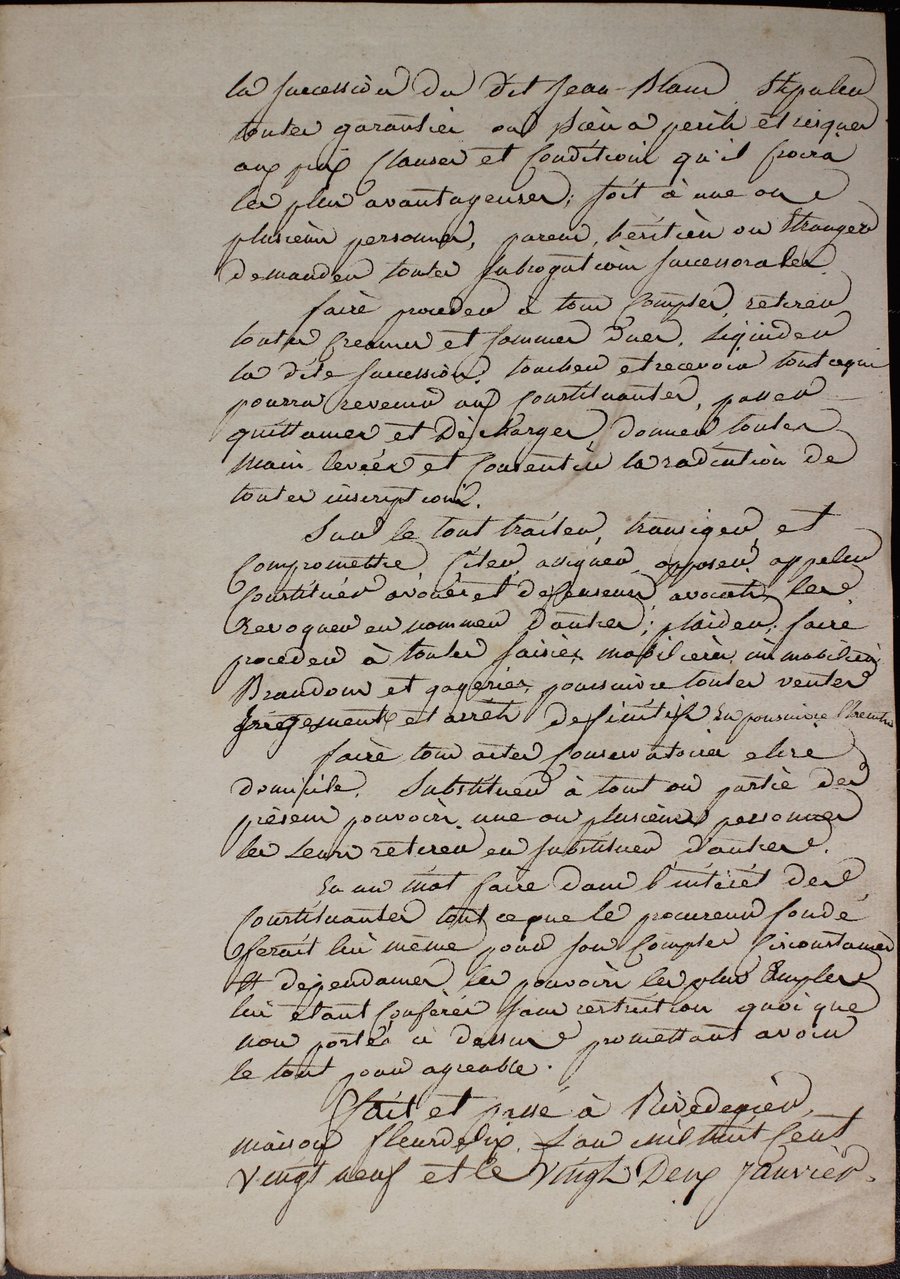 la succession du dit Jean Blanc, Stipuler
toutes garanties ou bien a perils et risques
aux prix clauses et conditions qu'il croira
les plus avantageuses, soit à une ou
plusieurs personnes, parens, héritiers ou Etrangers
demander toutes subrogations successorales.
faire proceder à tous comptes, retirer
toutes creances et sommes dues, liquider
la dite succession, toucher et recevoir tout ce qui
pourra revenir aux constituantes, passer
quittances et décharges, donner toutes
main levées et consentir la radiation de
toutes inscriptions.
Sur le tout traiter, transiger, et
compromettre citer, assigner, opposer, appeler
constituer avoués et defenseurs avocats, les
revoquer en nommer d'autres; plaider; faire
proceder à toutes saisies mobilieres, immobilières
Brandons et gageries, poursuivre toutes ventes
jugements et arrêts definitifs en poursuivre l'Execution
faire tous actes conservatoires elire
domicile. Substituer à tout ou partie des
présens pouvoirs une ou plusieurs personnes
les leurs retirer en substituer d'autres.
En un mot faire dans l'intérêt des
constituantes tout ce que le procureur fondé
ferait lui même pour son compte, circonstances
et dependances, les pouvoirs les plus amples
lui étant conférés sans restriction quoi que
non portés ci dessus promettant avoir
le tout pour agreable.
fait et passé à Rivedegier,
maison fleurdelix. L'an mil huit cent
vingt neuf et le vingt Deux Janvier.